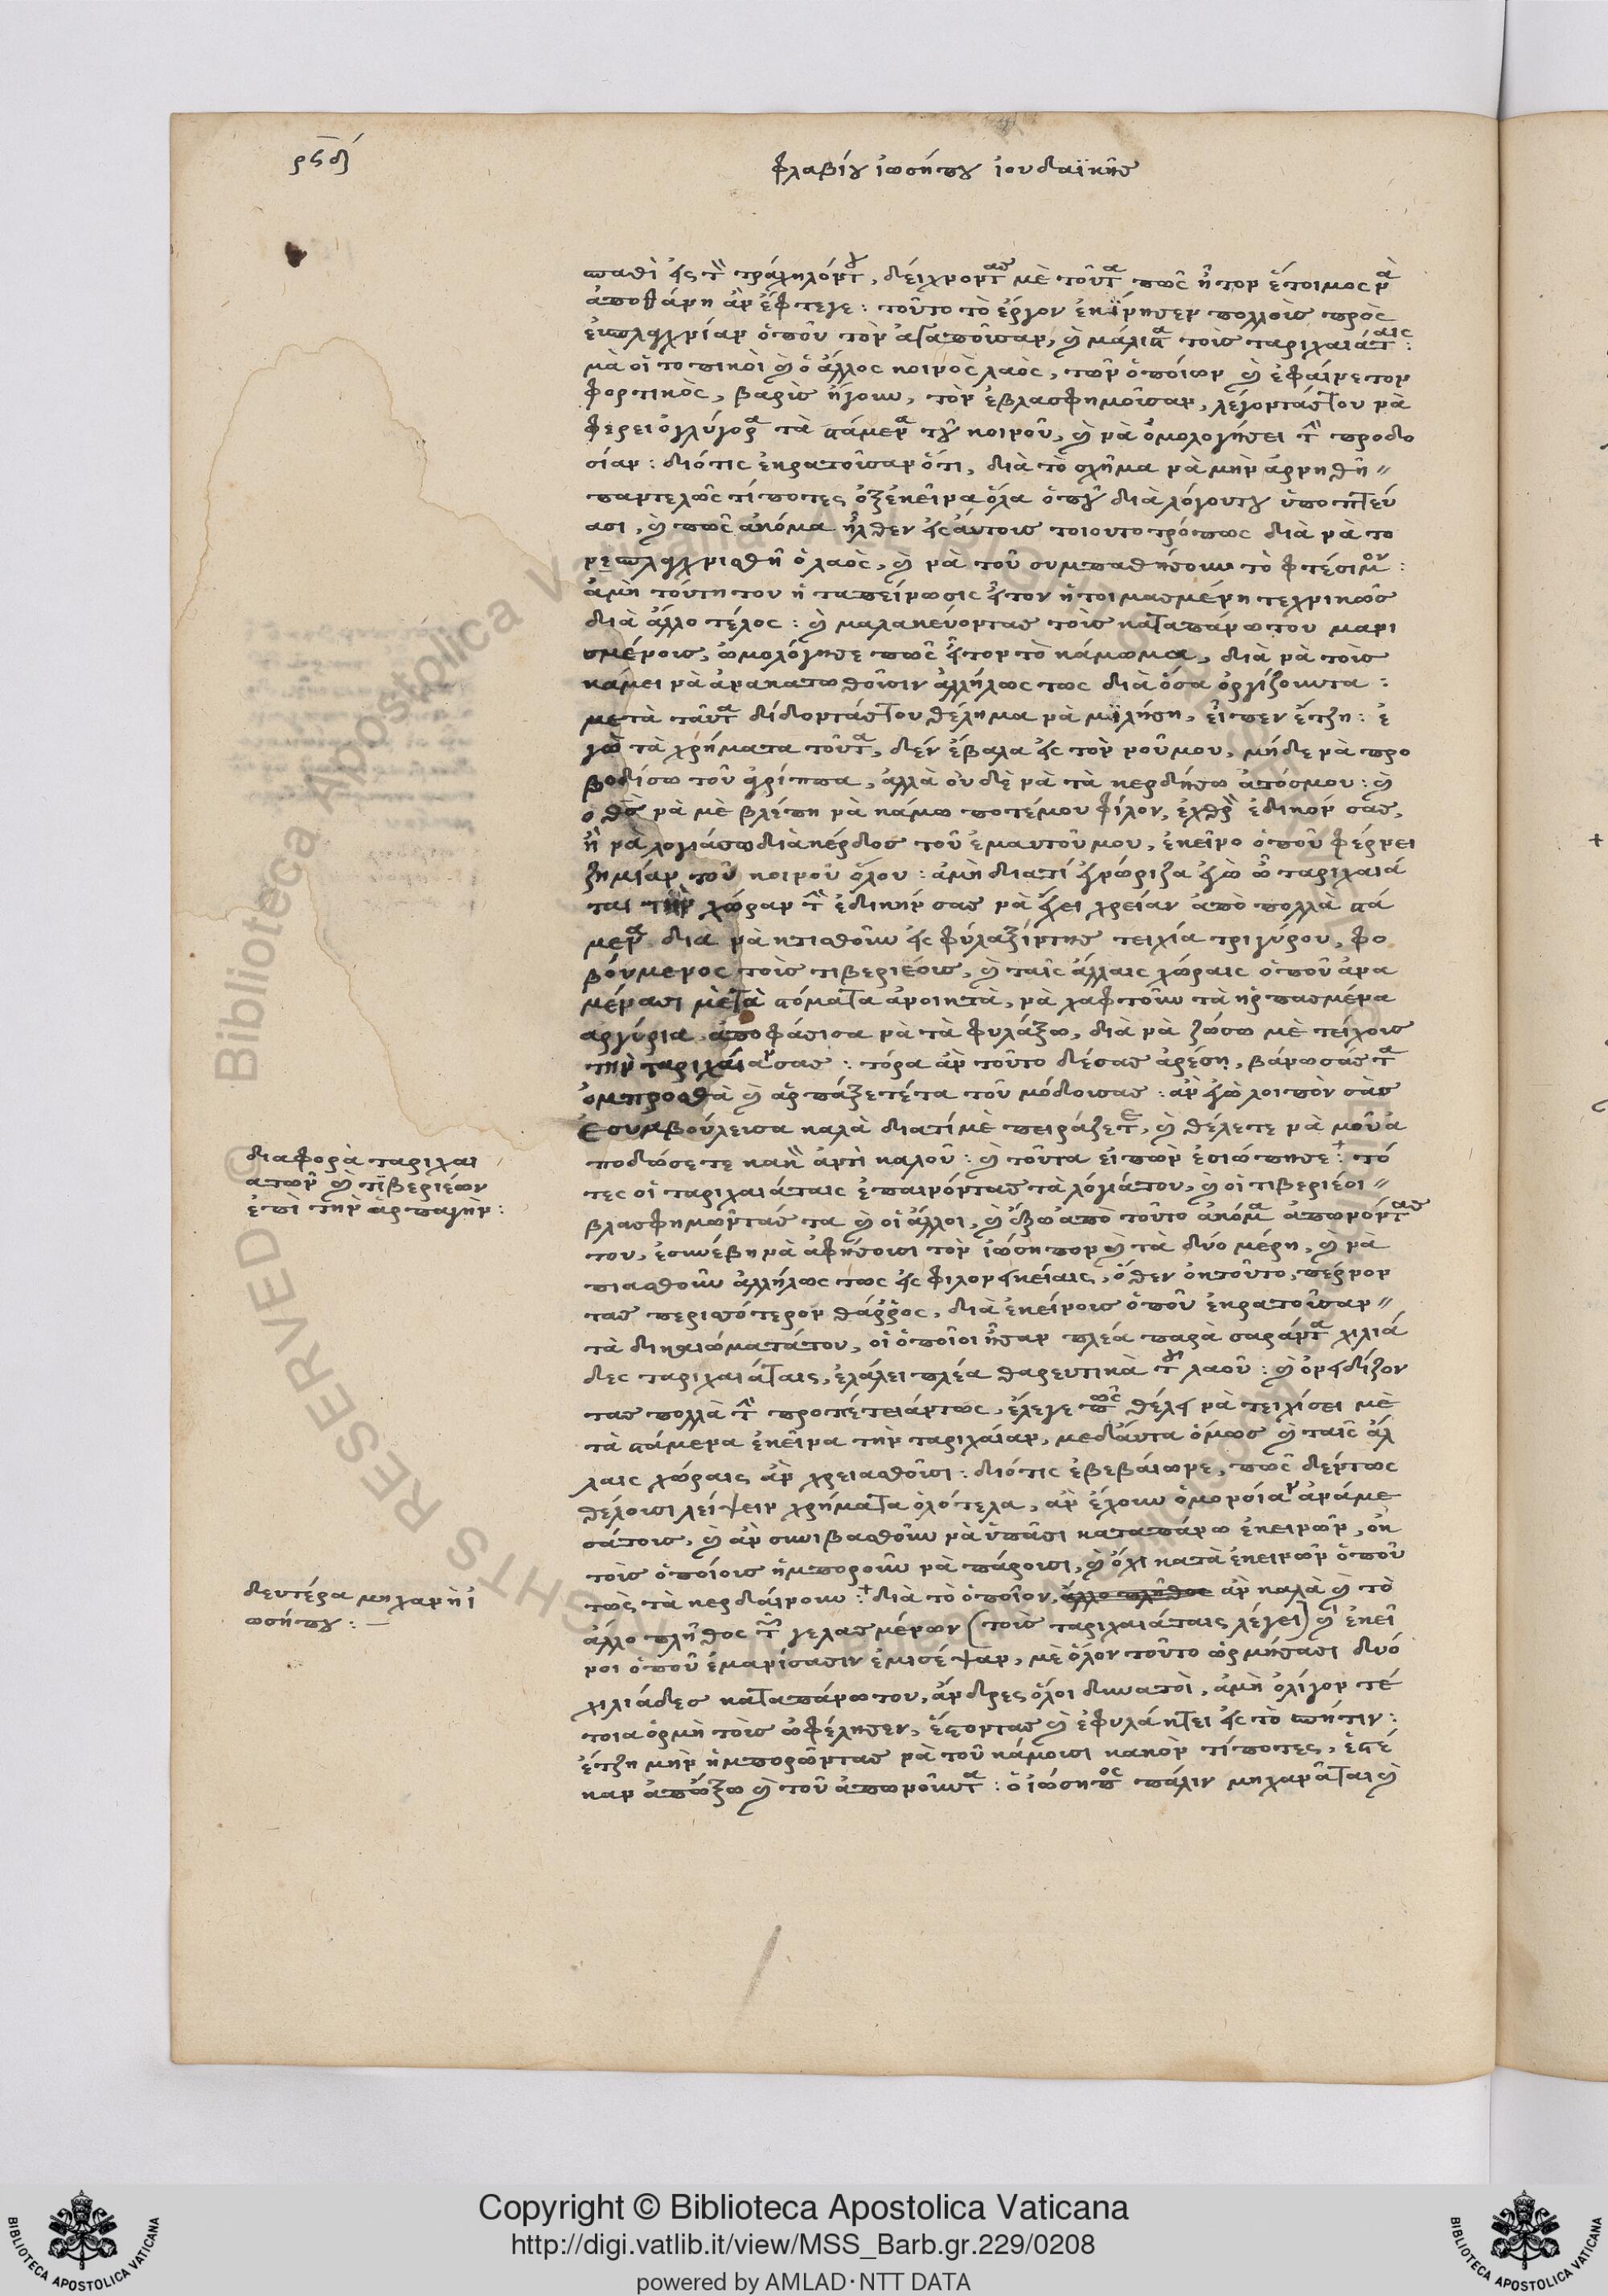 ρϟδ´
φλαβίου ἰωσήπου ἰουδαϊκῆς
σπαθὶ εἰς τὸ τράχηλόντου, δείχνοντας μὲ τοῦτα πῶς ἦτον ἕτοιμος νὰ
ἀποθάνη ἂν ἔφτεγε: τοῦτο τὸ ἔργον ἐκίνησεν πολλοὺς πρὸς
εὐσπλαχνίαν ὁποῦ τὸν ἀγαποῦσαν, καὶ μάλιστα τοὺς ταριχαιάταις:
μὰ οἱ τοπικοὶ καὶ ὁ ἄλλος κοινὸς λαὸς, τῶν ὁποίων καὶ ἐφαίνετον
φορτικὸς, βαρὶς ἤγουν, τὸν ἐβλασφημοῦσαν, λέγοντάςτου νὰ
φέρει ὀγλύγορα τὰ στάμενα τοῦ κοινοῦ, καὶ νὰ ὁμολογήσει τὴν προδο
σίαν: διότις ἐκρατοῦσαν ὅτι, διὰ τὸ σχῆμα νὰ μὴν ἀρνηθῆ
παντελῶς τίποτες ὀξεκεῖνα ὅλα ὁποῦ διὰ λόγουτου ὑποπτεύ
ασι, καὶ πῶς ἀκόμα ἦλθεν εἰς αὐτοὺς τοιουτοτρόπως διὰ νὰ το
νευσπλαχνισθῆ ὁ λαὸς, καὶ νὰ τοῦ συμπαθήσουν τὸ φτέσιμον:
ἀμὴ τούτη του ἡ ταπείνωσις ἦτον ἡτοιμασμένη τεχνικῶς
διὰ ἄλλο τέλος: καὶ μαλακεύοντας τοὺς καταπάνωτου μανι
σμένους, ὡμολόγησε πῶς ἦτον τὸ κάμωμα, διὰ νὰ τοὺς
κάμει νὰ ἀνακατωθοῦσιν ἀλλήλως τως διὰ ὅσα ὀργίζουντα:
μετὰ ταῦτα δίδοντάςτου θέλημα νὰ μιλήση, εἶπεν ἔτζη: ἐ
γὼ τὰ χρήματα τοῦτα, δὲν ἔβαλα εἰς τὸν νοῦμου, μήδε νὰ προ
βοδίσω τοῦ ἀγρίππα, ἀλλὰ οὐδὲ νὰ τὰ κερδήσω ἀτόσμου: καὶ
ὁ θεὸς νὰ μὲ βλέπη νὰ κάμω ποτέμου φίλον, ἐχθρὸν ἐδικόν σας,
ἢ νὰ λογιάσω διὰ κέρδος τοῦ ἐμαυτοῦ μου, ἐκεῖνο ὁποῦ φέρνει
ζημίαν τοῦ κοινοῦ ὅλου: ἀμὴ διατί ἐγνώριζα ἐγὼ ὦ ταριχαιά
ται τὴν χώραν τὴν ἐδικήν σας νὰ ἔχει χρείαν ἀπὸ πολλὰ στά
μενα διὰ νὰ κτισθοῦν εἰς φύλαξίντης τειχία τριγύρου, φο
βούμενος τοὺς τιβεριέους, καὶ ταῖς ἄλλαις χώραις ὁποῦ ἀνα
μένασι μετὰ στόματα ἀνοικτὰ, νὰ χαφτοῦν τὰ ἡρπασμένα
ἀργύρια ἀποφάσισα νὰ τὰ φυλάξω, διὰ νὰ ζώσω μὲ τείχους
τὴν ταριχαίαν σας: τόρα ἂν τοῦτο δέσας ἀρέση, βάνωσάς τα
ὀμπροσθὰ καὶ ἁρπάξετέτα τοῦ μόδουσας: ἂν ἐγὼ λοιπὸν σὰς
ἐσυμβούλευσα καλὰ διατί μὲ πειράζετε, καὶ θέλετε νὰ μοῦ ἀ
ποδώσετε κακὸν ἀντὶ καλοῦ: καὶ τοῦτα εἰπὼν ἐσιώπησε: τό
τες οἱ ταριχαιάταις ἐπαινόντας τὰ λόγιάτου, καὶ οἱ τιβεριέοι
βλασφημῶντάς τα καὶ οἱ ἄλλοι, καὶ ὄξω ἀπὸ τοῦτο ἀκόμα ἀπωνόντας
του, ἐσυνέβη νὰ ἀφήσουσι τὸν ἰώσηπον καὶ τὰ δύο μέρη, καὶ νὰ
πιασθοῦν ἀλλήλως τως εἰς φιλονεικείαις, ὅθεν ὀκτοῦτο, πέρνον
τας περισσότερον θάρρος, διὰ ἐκείνους ὁποῦ ἐκρατοῦσαν
τὰ δικαιώματάτου, οἱ ὁποῖοι ἦσαν πλέα παρὰ σαράντα χιλιά
δες ταριχαιάταις, ἐλάλει πλέα θαρευτικὰ τοῦ λαοῦ: καὶ ὀνειδίζον
τας πολλὰ τὴν προπέτειάντως, ἔλεγε πῶς θέλει νὰ τειχίσει μὲ
τὰ στάμενα ἐκεῖνα τὴν ταριχαίαν, μεδαύτα ὅμως καὶ ταῖς ἄλ
λαις χώραις ἂν χρειασθοῦσι: διότις ἐβεβαίωνε, πῶς δέντως
θέλουσι λείψειν χρήματα ὁλότελα, ἂν ἔχουν ὁμονοίαν ἀνάμε
σάτους, καὶ ἂν συνιβασθοῦν νὰ ὑπᾶσι καταπάνω ἐκεινῶν, ὀκ
τοὺς ὁποίους ἠμποροῦν νὰ πάρουσι, καὶ ὄχι κατὰ ἐκεινῶν ὁποῦ
τὼς τὰ κερδαίνουν: διὰ τὸ ὁποῖον, ἄλλο πλῆθος ἂν καλὰ καὶ τὸ
ἄλλο πλῆθος τῶν γελασμένων (τοὺς ταριχαιάταις λέγει) καὶ ἐκεῖ
νοι ὁποῦ ἐμανίσασιν ἐμισέψαν, μὲ ὅλον τοῦτο ὡρμήσασι δυό
χιλιάδες καταπάνωτου, ἄνδρες ὅλοι δυνατοὶ, ἀμὴ ὀλίγον τέ
τοια ὁρμὴ τοὺς ὠφέλησεν, ἔσοντας καὶ ἐφυλάκτει εἰς τὸ σπήτιν:
ἔτζη μὴν ἠμπορῶντας νὰ τοῦ κάμουσι κακὸν τίποτες, ἐστέ
καν ἀπώξω καὶ τοῦ ἀπωνοῦντα: ὁ ἰώσηπος πάλιν μηχανᾶται καὶ
διαφορὰ ταριχαι
ατῶν καὶ τιβεριέων
ἐπὶ τὴν ἁρπαγὴν:
δευτέρα μηχανὴ ἰ
ωσήπου: —
© Biblioteca Apostolica Vaticana
RIGHTS RESERVED
Copyright © Biblioteca Apostolica Vaticana
http://digi.vatlib.it/view/MSS_Barb.gr.229/0208
powered by AMLAD·NTT DATA
BIBLIOTECA APOSTOLICA VATICANA
BIBLIOTECA APOSTOLICA VATICANA